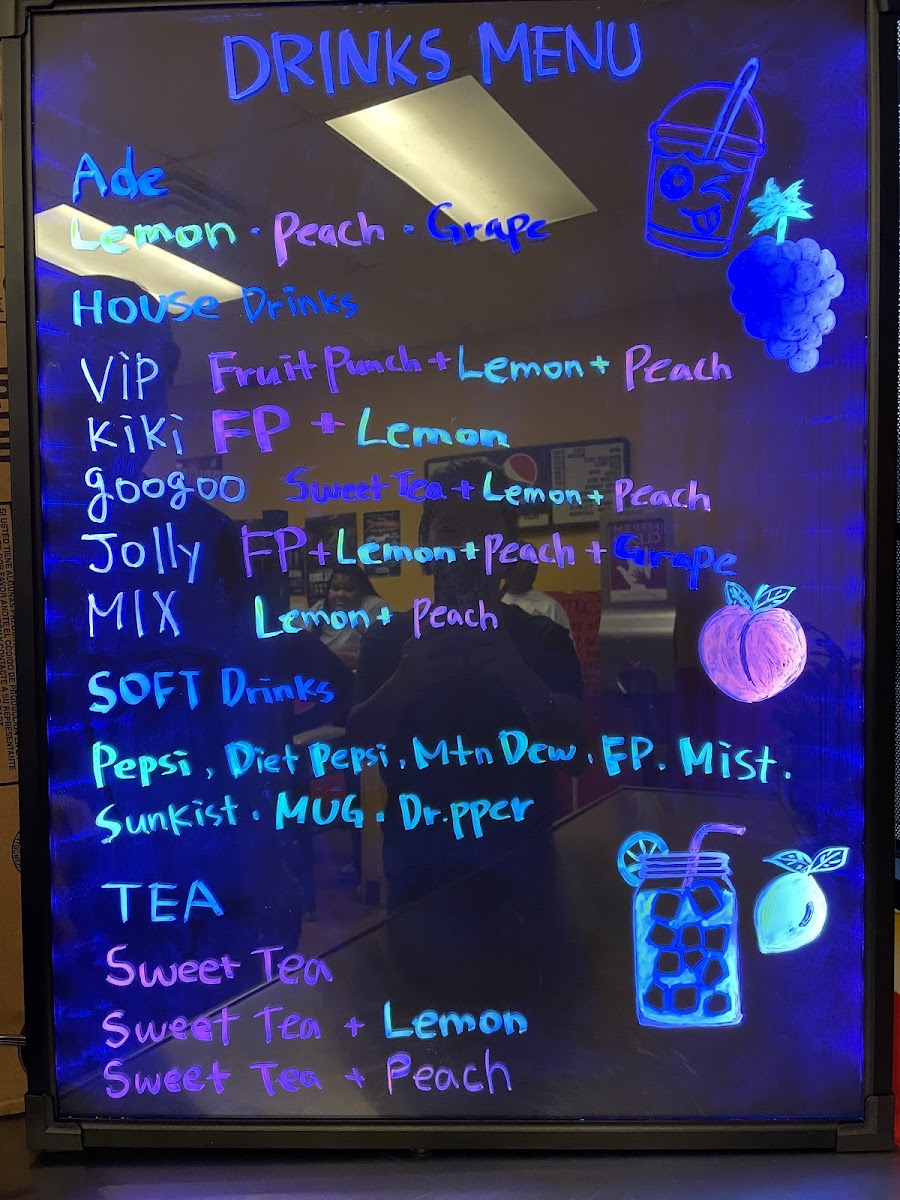 DRINKS MENU
Ade
Lemon · Peach · Grape
House Drinks
ViP Fruit Punch + Lemon + Peach
KiKi FP + Lemon
googoo Sweet Tea + Lemon + Peach
Jolly FP + Lemon + Peach + Grape
MIX Lemon + Peach
SOFT Drinks
Pepsi, Diet Pepsi, Mtn Dew, FP. Mist.
Sunkist. MUG. Dr.pper
TEA
Sweet Tea
Sweet Tea + Lemon
Sweet Tea + Peach